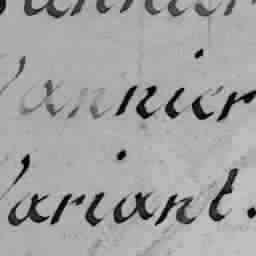 Vannier
Variant.